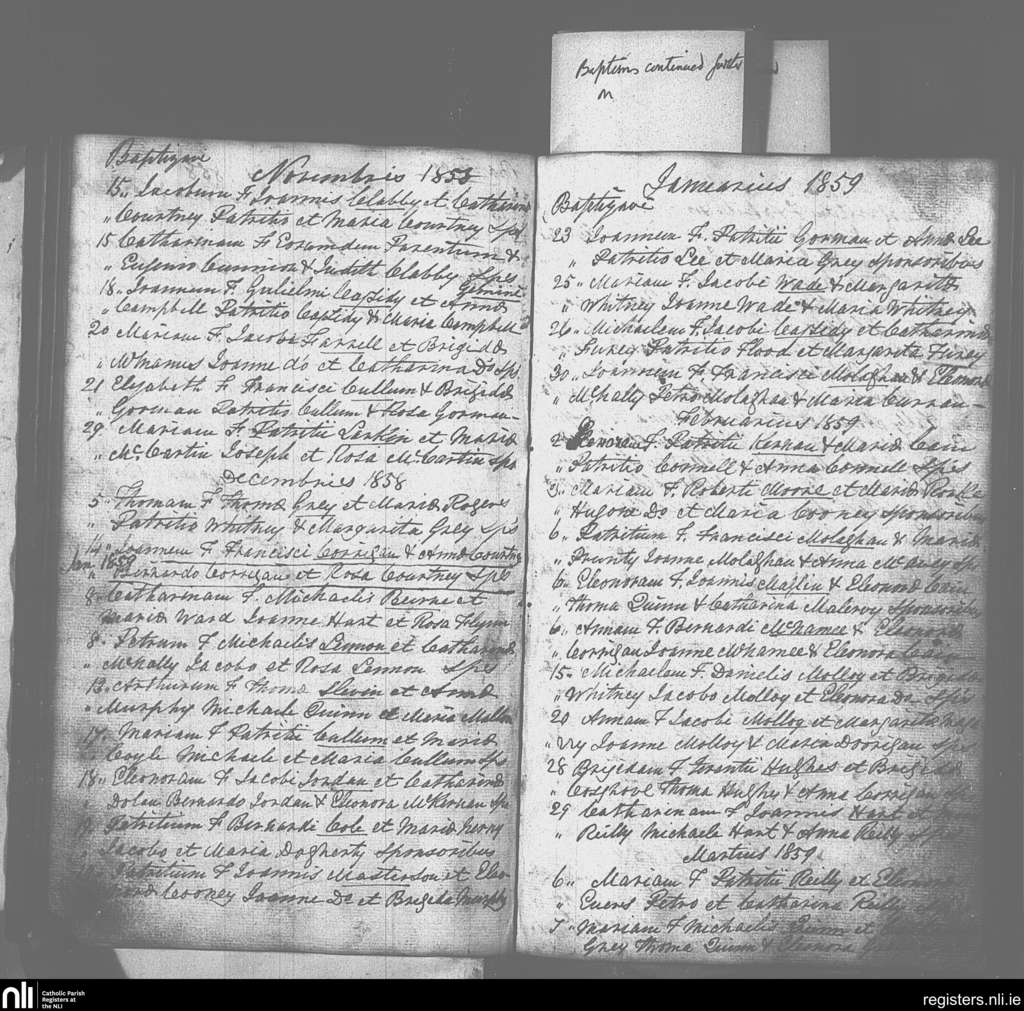 Baptisms continued further
on
Baptizavi
Novembris 1858
15 " Jacobum F Joannis Clabby et Catharinæ
" Courtney Patritio et Maria Courtney Sps
15 Catharinam F. Eorumdem Parentum &
" Eugenio Cunnion & Judith Clabby Sps
18 " Joannem F. Gulielmi Cassidy et Annæ
" Campbell Patritio Cassidy & Maria Campbell
20 Mariam F. Jacobi Farrell et Brigidæ
" McManus Joanne do et Catharina Do Sps
21 Elizabeth F Francisci Cullum & Brigidæ
" Gorman Patritio Cullum & Rosa Gorman
29 Mariam F Patritii Larkin et Mariæ
" Mc Cartin Joseph et Rosa McCartin Sps
Decembries 1858
5 " Thomam F Thomæ Grey et Mariæ Rogers
" Patritio Whitney & Margarita Grey Sps
14 " Joannem F Francisci Corrigan & Annæ Courtney
Jan. 1859
" Bernardo Corrigan et Rosa Courtney Sps
8 " Catharinam F. Michaelis Beirne et
Mariæ Ward Joanne Hart et Rosa Flynn
8 " Petrum F Michaelis Lennon et Catharinæ
" McNally Jacobo et Rosa Lennon Sps
13 " Arthurum F Thomæ Slevin et Annæ
" Murphy Michaele Quinn et Maria Mallon
17 " Mariam F Patritii Cullum et Mariæ
Coyle Michaele et Maria Cullum Sps
18 " Eleonoram F Jacobi Jordan et Catharinæ
" Dolan Bernardo Jordan & Eleonora McKernan Sps
19 " Patritium F Bernardi Cole et Mariæ
Jacobo et Maria Dogherty Sponsoribus
Patritium F Joannis Masterson et Eleo
noræ Cooney Joanne Do et Brigida Murphy
Januarius 1859
Baptizavi
23 Joannem F. Patritii Gorman et Annæ Lee
" Patritio Lee et Maria Grey Sponsoribus
25 " Mariam F. Jacobi Wade & Margaritæ
" Whitney Joanne Wade & Maria Whitney
26 " Michaelem F. Jacobi Cassidy et Catharinæ
" Furey Patritio Flood et Margarita Furey
30 " Joannem F Francisci Molaghan & Eleonoræ
" McNally Petro Molaghan & Maria Curran
Februarius 1859
2 F. Patritii Kernan & Mariæ Cain
" Patritio Connell & Anna Connell Sps
3 " Mariam F. Roberti Moore et Mariæ
" Hugone Do et Maria Cooney Sponsoribus
6 " Patritium F. Francisci Molaghan & Mariæ
" Prunty Joanne Molaghan & Anna Sps
6 " Eleonoram F. Joannis Maglin & Eleonoræ Cain
" Thoma Quinn & Catharina Mulervy Sponsoribus
6 " Annam F. Bernardi McNamee & Eleonoræ
" Corrigan Joanne McNamee & Eleonora Cain
15 " Michaelem F. Danielis Molloy et Brigidæ
" Whitney Jacobo Molloy et Eleonora Do Sps
20 Annam F Jacobi Molloy et Margaritæ
" Joanne Molloy & Maria Doorigan Sps
28 Brigidam F Hughes et Brigidæ
" Cosgrove Thoma Hughes & Anna Corrigan
29 Catharinam F Joannis Hart et
" Reilly Michaele Hart & Anna Reilly Sps
Martius 1859
6 " Mariam F Patritii Reilly et
" Evers Petro et Catharina Reilly
7 " Mariam F Michaelis Quinn et
Grey Thoma Quinn & Eleonora
nli Catholic Parish Registers at the NLI
registers.nli.ie